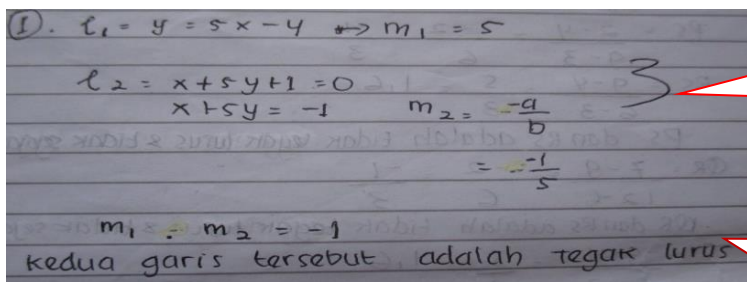 ①. l₁ = y = 5x - 4 → m₁ = 5
l₂ = x + 5y + 1 = 0
x + 5y = -1 m₂ = -a/b
= -1/5
m₁ · m₂ = -1
Kedua garis tersebut adalah tegak lurus